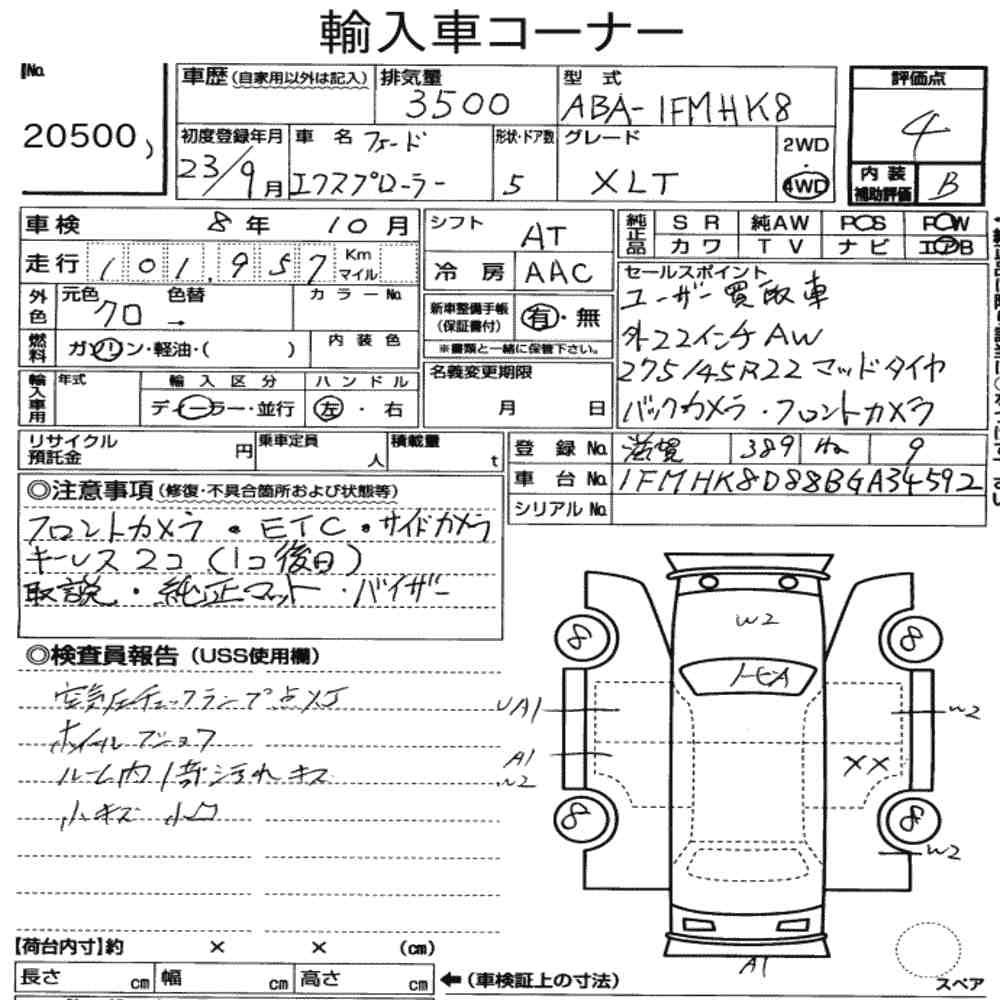 輸入車コーナー
No.
20500
車歴 (自家用以外は記入)
排気量
3500
型式
ABA-1FMHK8
評価点
4
初度登録年月
23/9月
車名
フォード
エクスプローラー
形状・ドア数
5
グレード
XLT
2WD
4WD
内装
補助評価
B
車検 8年 10月
走行 101,957 Km マイル
シフト
AT
冷房 AAC
純正品
SR 純AW PS PW
カワ TV ナビ エアB
外色
元色 色替 カラーNo.
クロ →
燃料
ガソリン・軽油・( )
内装色
新車整備手帳
(保証書付)
有・無
※書類と一緒に保管下さい。
セールスポイント
ユーザー買取車
外22インチAW
275/45R22マッドタイヤ
バックカメラ・フロントカメラ
輸入車用
年式
輸入区分
ディーラー・並行
ハンドル
左・右
名義変更期限
月 日
リサイクル
預託金
円
乗車定員
人
積載量
t
登録No. 滋賀 389 ね 9
車台No. 1FMHK8D88BGA34592
シリアルNo.
◎注意事項(修復・不具合箇所および状態等)
フロントカメラ・ETC・サイドカメラ
キーレス2コ(1コ後日)
取説・純正マット・バイザー
◎検査員報告(USS使用欄)
空気圧チェックランプ点灯
ホイール
ルーム内 汚れ キズ
小キズ 小凹
W2
UA1
A1
W2
W2
XX
W2
8
8
8
8
A1
スペア
【荷台内寸】約 × × (cm)
長さ cm 幅 cm 高さ cm
←(車検証上の寸法)